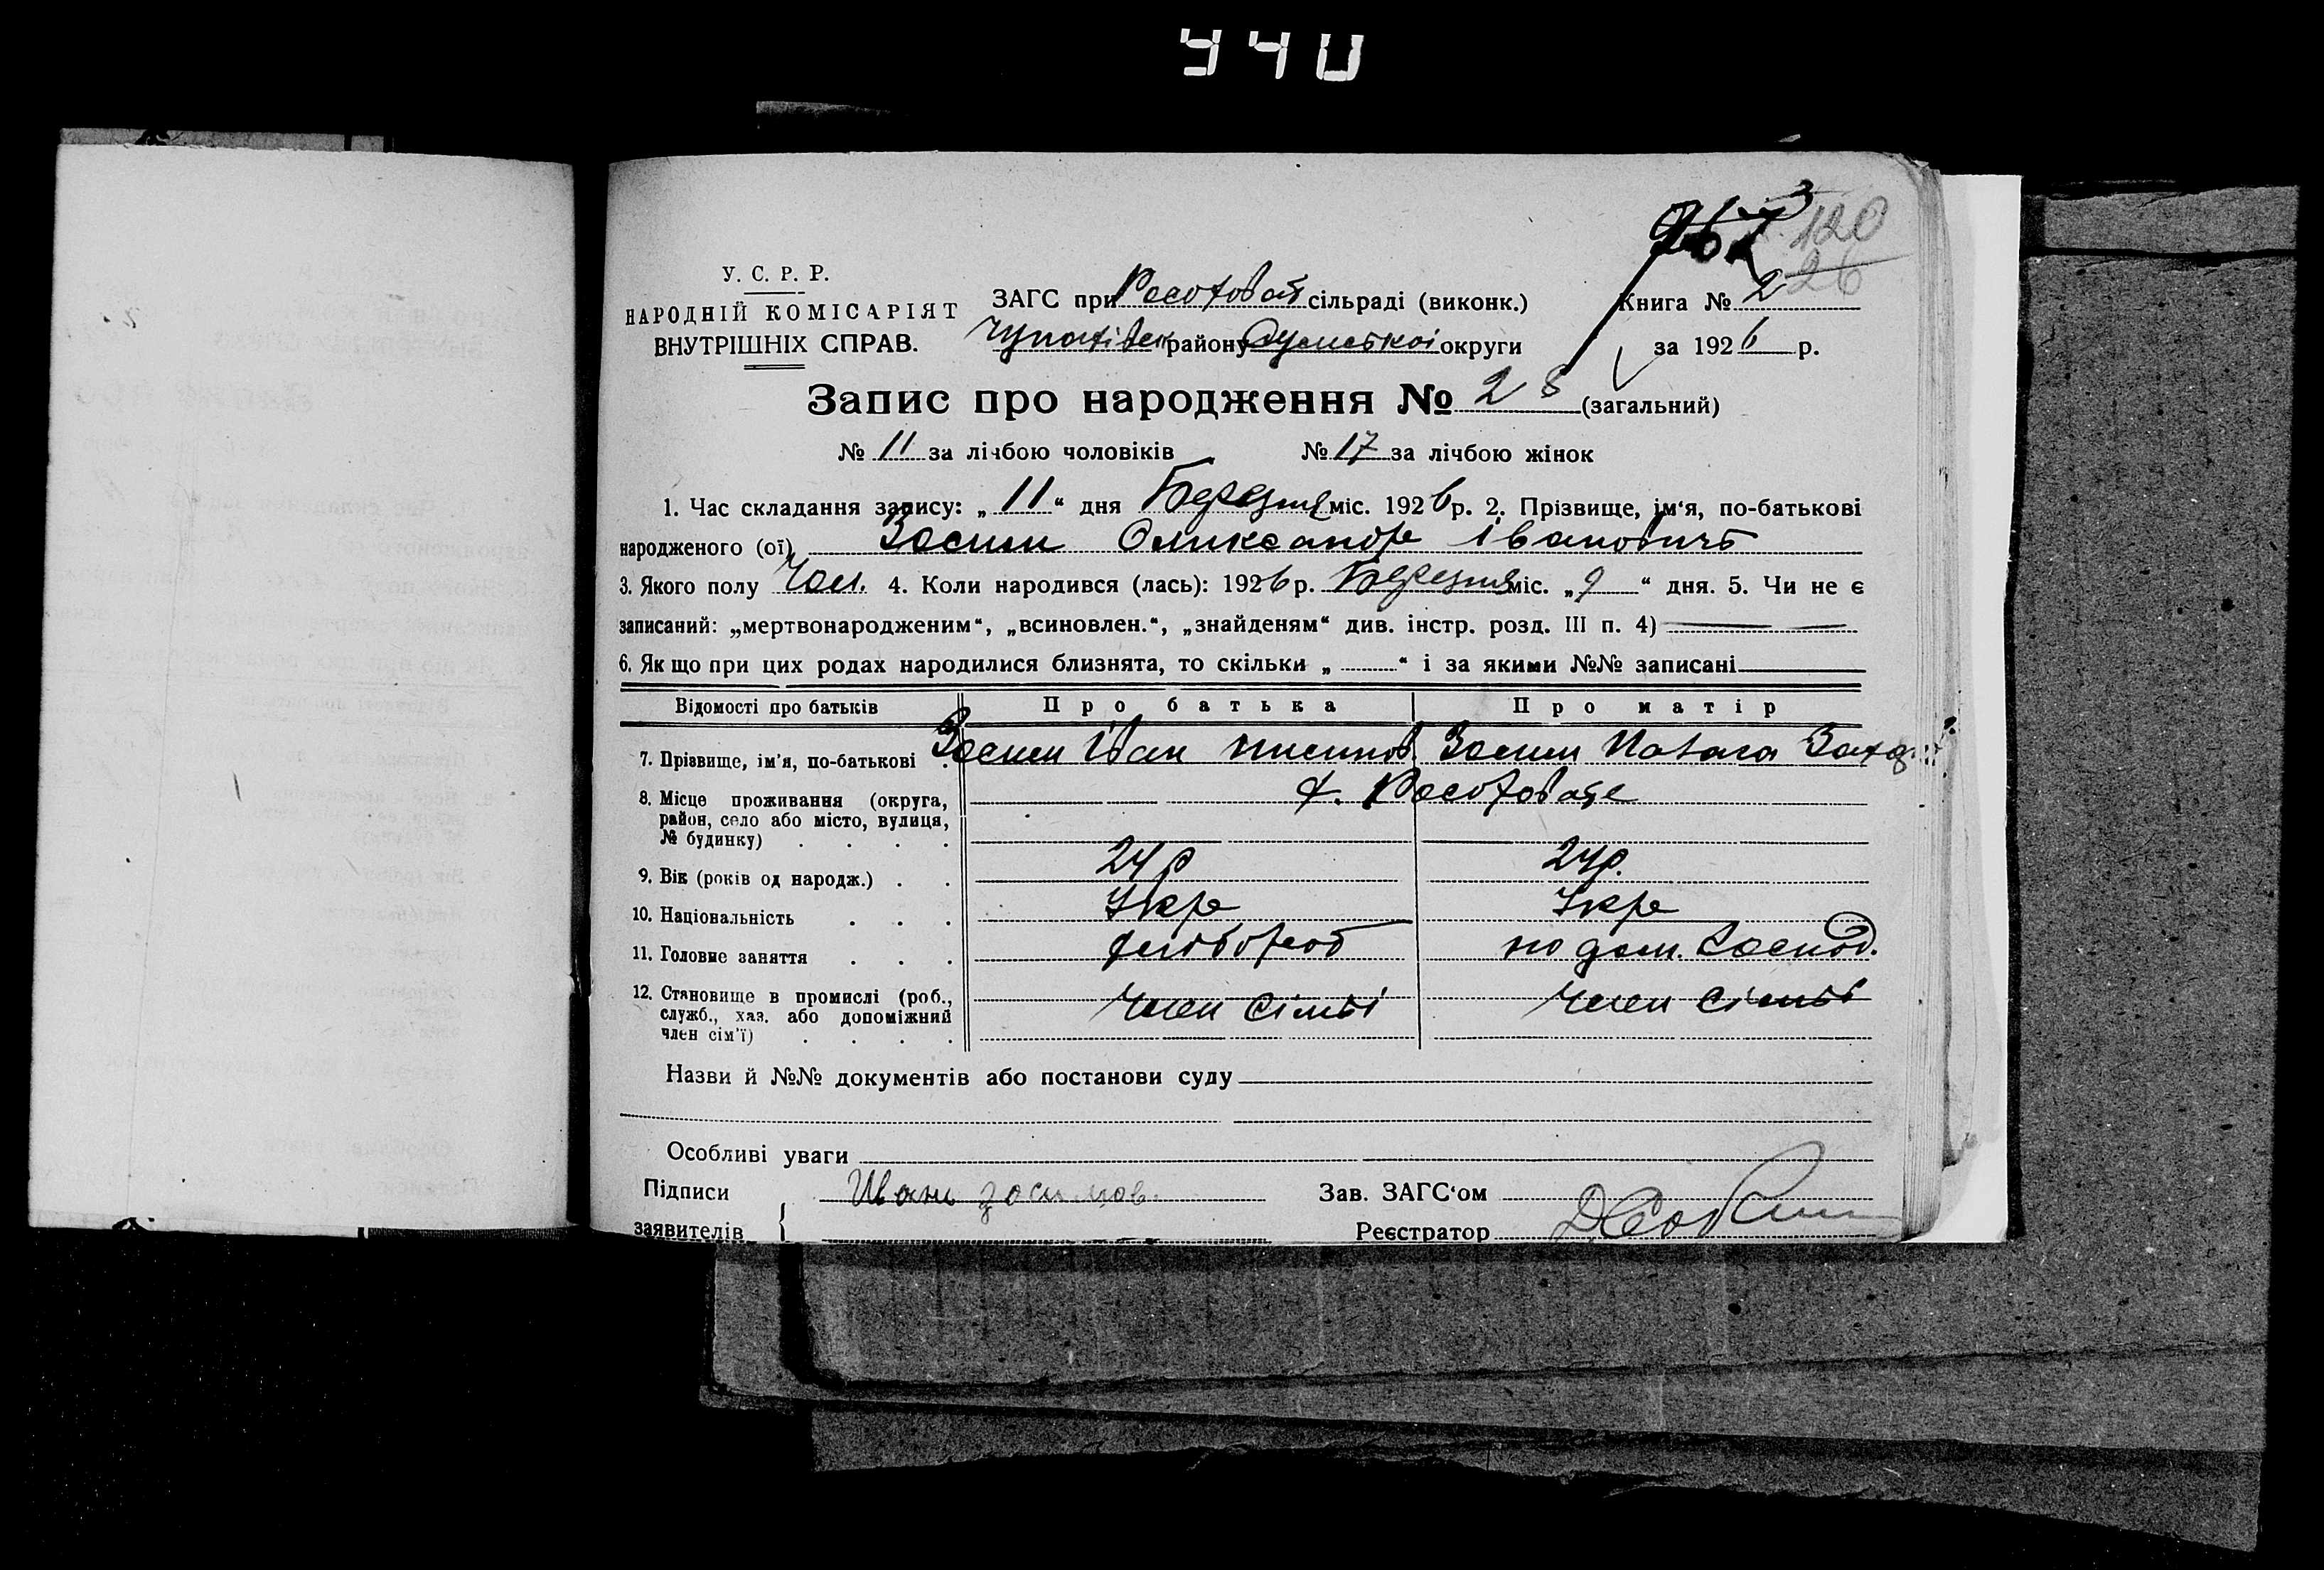 440
120
26
У. С. Р. Р.
НАРОДНІЙ КОМІСАРІЯТ
ВНУТРІШНІХ СПРАВ.
ЗАГС при сільраді (виконк.)
району Сумської округи
Книга № 2
за 1926 р.
Запис про народження № 28 (загальний)
№ 11 за лічбою чоловіків № 17 за лічбою жінок
1. Час складання запису: „ 11 “ дня Березня міс. 1926 р. 2. Прізвище, ім‘я, по-батькові
народженого (ої) Зосим Оликсандр Івановичъ
3. Якого полу Чол. 4. Коли народився (лась): 1926 р. Березня міс. „ 9 “ дня. 5. Чи не є
записаний: „мертвонародженим“, „всиновлен.“, „знайденям“ див. інстр. розд. III п. 4)
6. Якщо при цих родах народилися близнята, то скільки „ “ і за якими №№ записані
Відомості про батьків Про батька Про матір
7. Прізвище, ім’я, по-батькові . Зосим Іван Зосим
8. Місце проживання (округа,
район, село або місто, вулиця,
№ будинку) . . . .
9. Вік (років од народж.) . . 24 р 24 р.
10. Національність . . . Укр Укр
11. Головне заняття . . . хлібороб по дом. господ.
12. Становище в промислі (роб.,
служб., хаз. або допоміжний
член сім’ї) . . . . Член сімьі Член сімьі
Назви й №№ документів або постанови суду
Особливі уваги
Підписи Иван Зав. ЗАГС‘ом
заявителів { Реєстратор